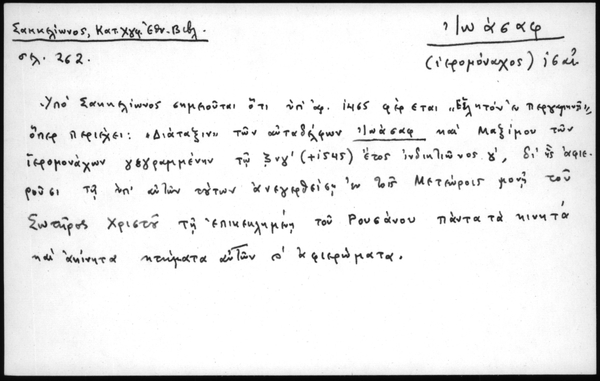 Σακκελίωνος, Κατ. Χγφ. Ἐθν. Βιβλ.
σελ. 262.
Ἰωάσαφ
(ἱερομόναχος) ις αἰ
Ὑπὸ Σακκελίωνος σημειοῦται ὅτι ὑπ' ἀρ. 1465 φέρεται "Εἰλητὸν ἐν περγαμηνῇ",
ὅπερ περιέχει: "Διάταξιν" τῶν αὐταδέλφων Ἰωάσαφ καὶ Μαξίμου τῶν
ἱερομονάχων γεγραμμένην τῷ ζνγ' (+1545) ἔτος ἰνδικτιῶνος γ', δι' ἧς ἀφιε-
ροῦσι τῇ ὑπ' αὐτῶν τούτων ἀνεγερθείσῃ ἐν τοῖς Μετεώροις μονῇ τοῦ
Σωτῆρος Χριστοῦ τῇ ἐπικεκλημένῃ τοῦ Ρουσάνου πάντα τὰ κινητά
καὶ ἀκίνητα κτήματα αὐτῶν ἀφιερώματα.